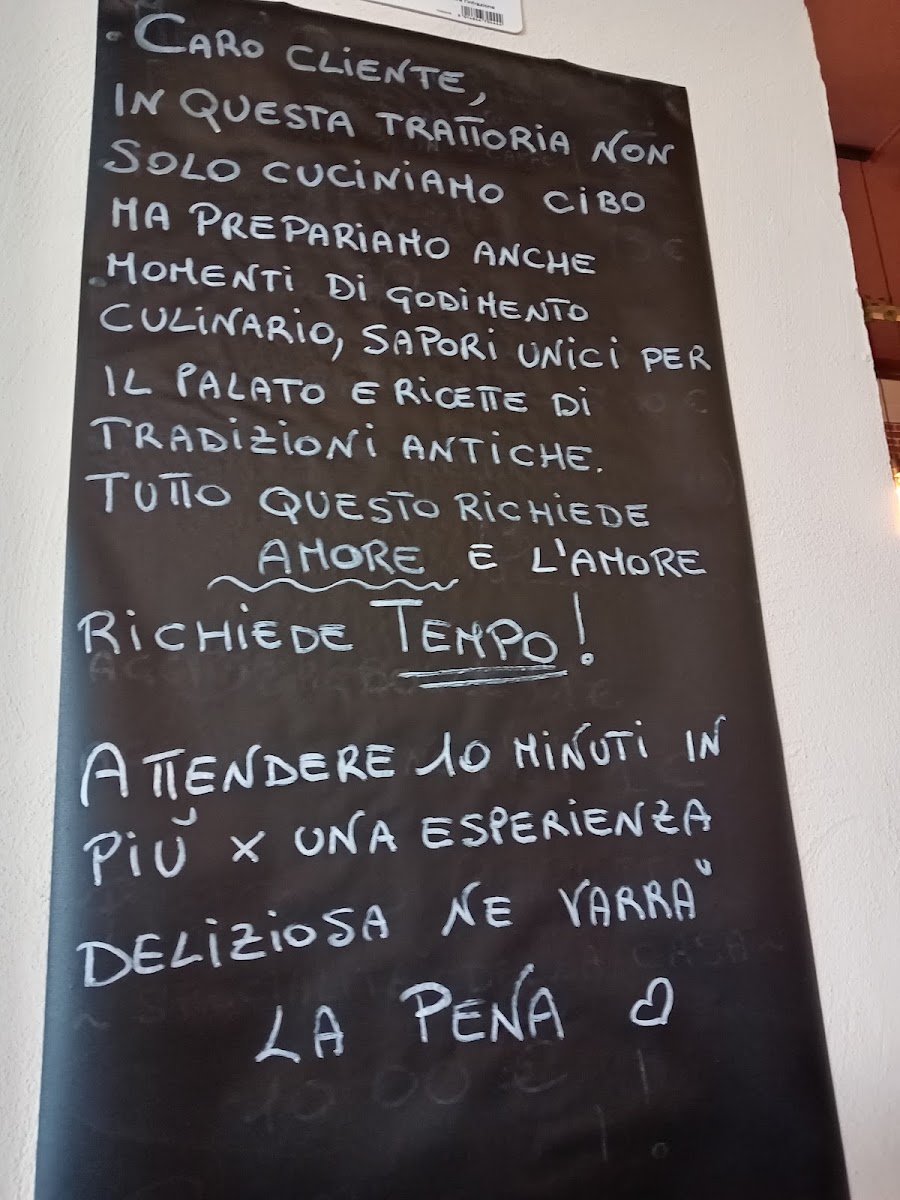 CARO CLIENTE,
IN QUESTA TRATTORIA NON
SOLO CUCINIAMO CIBO
MA PREPARIAMO ANCHE
MOMENTI DI GODIMENTO
CULINARIO, SAPORI UNICI PER
IL PALATO E RICETTE DI
TRADIZIONI ANTICHE.
TUTTO QUESTO RICHIEDE
AMORE E L'AMORE
RICHIEDE TEMPO!
ATTENDERE 10 MINUTI IN
PIÙ X UNA ESPERIENZA
DELIZIOSA NE VARRÀ
LA PENA ♡